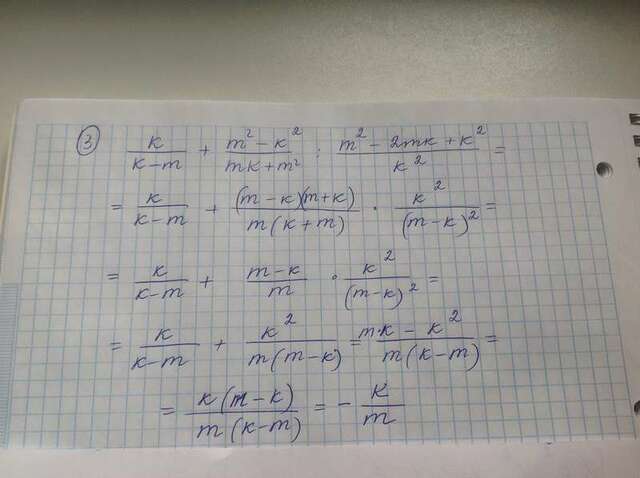 3) k/(k−m) + (m² − k²)/(mk+m²) : (m² − 2mk + k²)/k² =
= k/(k−m) + (m−k)(m+k)/(m(k+m)) · k²/(m−k)² =
= k/(k−m) + (m−k)/m · k²/(m−k)² =
= k/(k−m) + k²/(m(m−k)) = (m·k − k²)/(m(k−m)) =
= k(m−k)/(m(k−m)) = − k/m